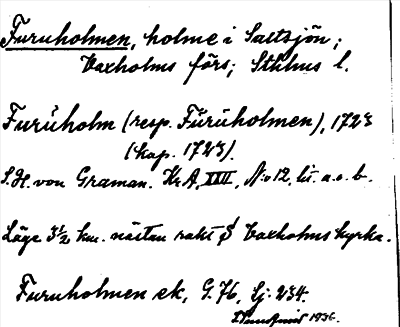 Furuholmen, holme i Saltsjön;
Vaxholms förs; Sthlms l.
Furŭholm (resp. Fŭrŭholmen), 1723
(kop. 1723).
S.H. von Graman. Kr A, XXII, N:o 12, lit. a. o. b.
Läge 3 1/2 km. nästan rakt S Vaxholms kyrka.
Furuholmen ek, G. 76, Lj: 234.
1936.